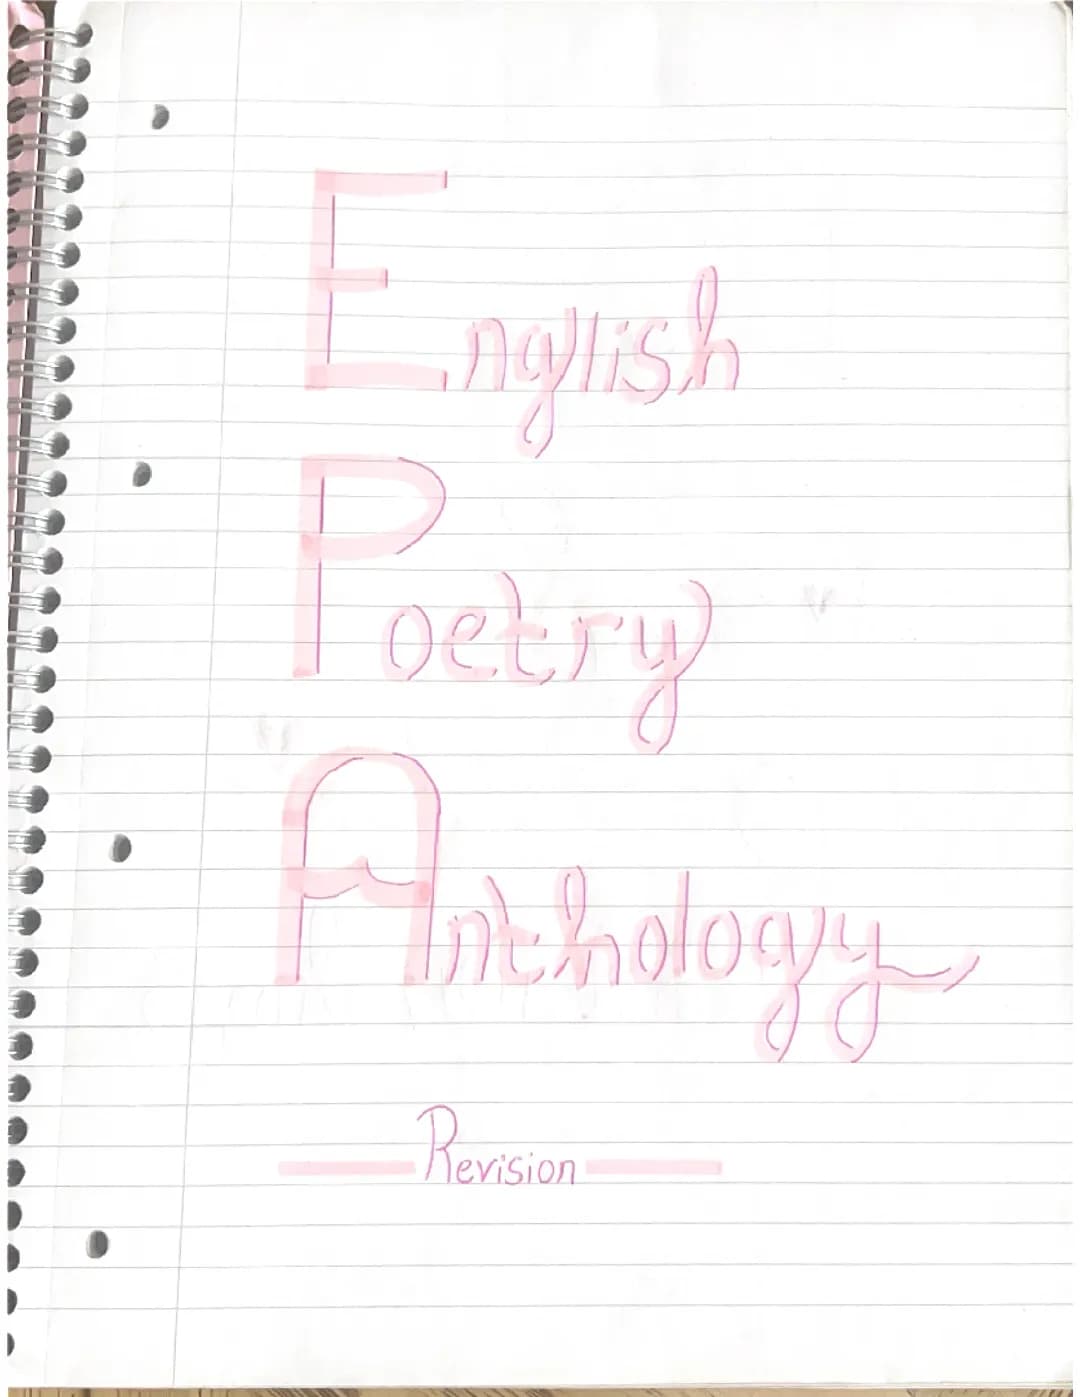 English
Poetry
Anthology
Revision